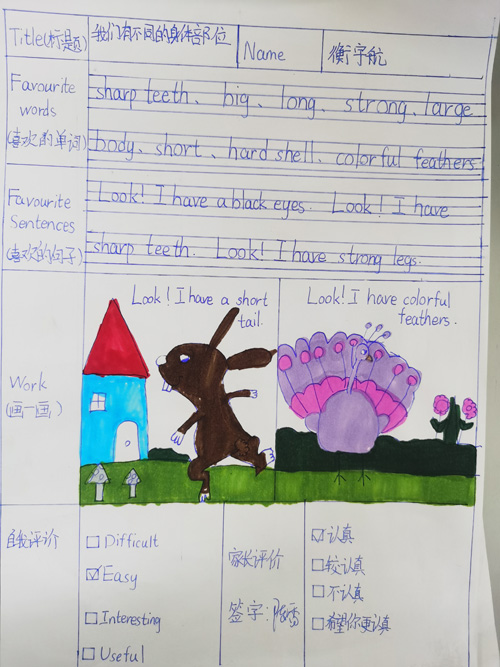 Title(标题)
我们有不同的身体部位
Name
衡宇航
Favourite
words
(喜欢的单词)
sharp teeth、 big、 long、 strong、large
body、short、hard shell、colorful feathers
Favourite
Sentences
(喜欢的句子)
Look! I have a black eyes. Look! I have
sharp teeth. Look! I have strong legs.
Work
(画一画)
Look! I have a short
tail.
Look! I have colorful
feathers.
自我评价
Difficult
Easy
Interesting
Useful
家长评价
签字:
认真
较认真
不认真
希望你更认真